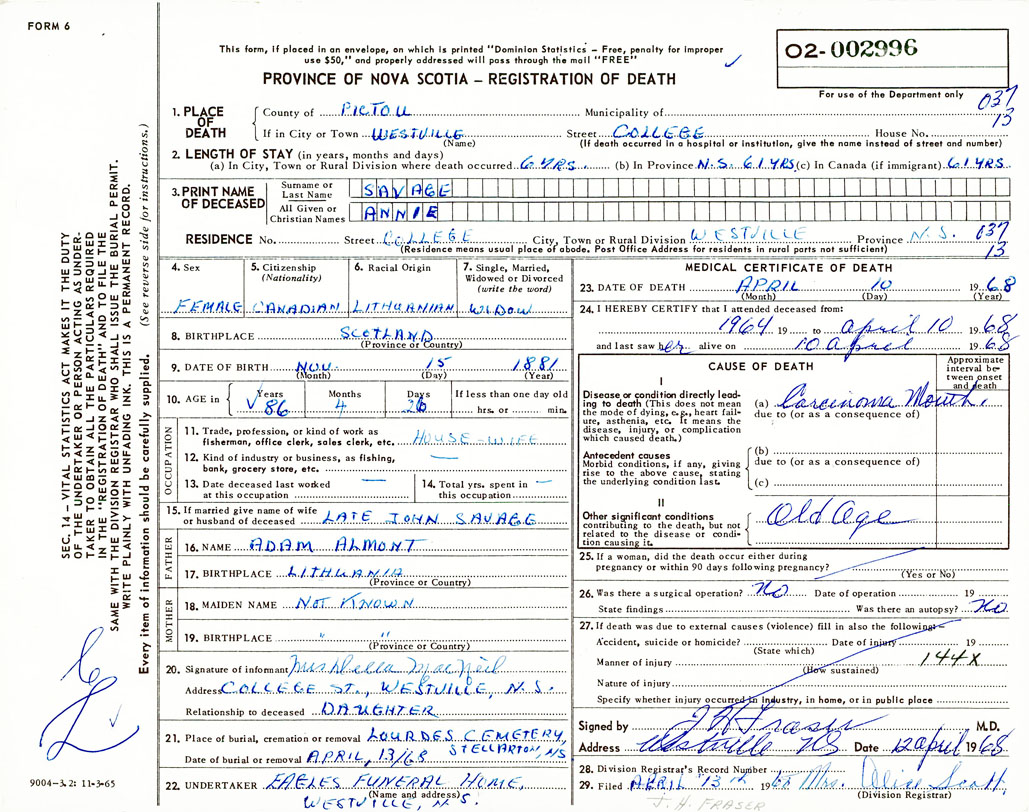 FORM 6
This form, if placed in an envelope, on which is printed "Dominion Statistics – Free, penalty for improper
use $50," and properly addressed will pass through the mail "FREE"
PROVINCE OF NOVA SCOTIA – REGISTRATION OF DEATH
02-002996
For use of the Department only
037
13
1. PLACE OF DEATH
County of PICTOU Municipality of
If in City or Town WESTVILLE Street COLLEGE House No.
(Name) (If death occurred in a hospital or institution, give the name instead of street and number)
2. LENGTH OF STAY (in years, months and days)
(a) In City, Town or Rural Division where death occurred 6 YRS. (b) In Province N.S. 61 YRS (c) In Canada (if immigrant) 61 YRS
3. PRINT NAME OF DECEASED
Surname or Last Name SAVAGE
All Given or Christian Names ANNIE
RESIDENCE No. Street COLLEGE City, Town or Rural Division WESTVILLE Province N.S. 037
(Residence means usual place of abode. Post Office Address for residents in rural parts not sufficient) 13
4. Sex
FEMALE
5. Citizenship (Nationality)
CANADIAN
6. Racial Origin
LITHUANIAN
7. Single, Married, Widowed or Divorced (write the word)
WIDOW
8. BIRTHPLACE SCOTLAND
(Province or Country)
9. DATE OF BIRTH NOV. 15 1881
(Month) (Day) (Year)
10. AGE in Years Months Days If less than one day old
86 4 26 hrs. or min.
OCCUPATION
11. Trade, profession, or kind of work as
fisherman, office clerk, sales clerk, etc. HOUSE-WIFE
12. Kind of industry or business, as fishing,
bank, grocery store, etc. —
13. Date deceased last worked
at this occupation —
14. Total yrs. spent in
this occupation —
15. If married give name of wife
or husband of deceased LATE JOHN SAVAGE
FATHER
16. NAME ADAM ALMONT
17. BIRTHPLACE LITHUANIA
(Province or Country)
MOTHER
18. MAIDEN NAME NOT KNOWN
19. BIRTHPLACE " "
(Province or Country)
20. Signature of informant Mrs Della MacNeil
Address COLLEGE ST., WESTVILLE, N.S.
Relationship to deceased DAUGHTER
21. Place of burial, cremation or removal LOURDES CEMETERY,
STELLARTON, NS
Date of burial or removal APRIL, 13/68
22. UNDERTAKER EAGLES FUNERAL HOME,
(Name and address)
WESTVILLE, N.S.
MEDICAL CERTIFICATE OF DEATH
23. DATE OF DEATH APRIL 10 1968
(Month) (Day) (Year)
24. I HEREBY CERTIFY that I attended deceased from:
1964 19 to April 10 1968
and last saw her alive on 10 April 1968
CAUSE OF DEATH
Approximate interval between onset and death
I
Disease or condition directly leading to death (This does not mean
the mode of dying, e.g., heart failure, asthenia, etc. It means the
disease, injury, or complication
which caused death.)
(a) Carcinoma Mouth.
due to (or as a consequence of)
Antecedent causes
Morbid conditions, if any, giving
rise to the above cause, stating
the underlying condition last.
(b)
due to (or as a consequence of)
(c)
II
Other significant conditions
contributing to the death, but not
related to the disease or condition causing it.
Old Age
25. If a woman, did the death occur either during
pregnancy or within 90 days following pregnancy?
(Yes or No)
26. Was there a surgical operation? No. Date of operation 19
State findings Was there an autopsy? No
27. If death was due to external causes (violence) fill in also the following:–
Accident, suicide or homicide? Date of injury 19
(State which)
Manner of injury 144X
(How sustained)
Nature of injury
Specify whether injury occurred in industry, in home, or in public place
Signed by J H Fraser M.D.
Address Westville NS Date 12 April 1968
28. Division Registrar's Record Number
29. Filed APRIL 13TH 1968 Mrs. Alice Scott
(Division Registrar)
J. H. FRASER
SEC. 14 – VITAL STATISTICS ACT MAKES IT THE DUTY
OF THE UNDERTAKER OR PERSON ACTING AS UNDER-
TAKER TO OBTAIN ALL THE PARTICULARS REQUIRED
IN THE "REGISTRATION OF DEATH" AND TO FILE THE
SAME WITH THE DIVISION REGISTRAR WHO SHALL ISSUE THE BURIAL PERMIT.
WRITE PLAINLY WITH UNFADING INK. THIS IS A PERMANENT RECORD.
Every item of information should be carefully supplied. (See reverse side for instructions.)
9004-3.2: 11-3-65